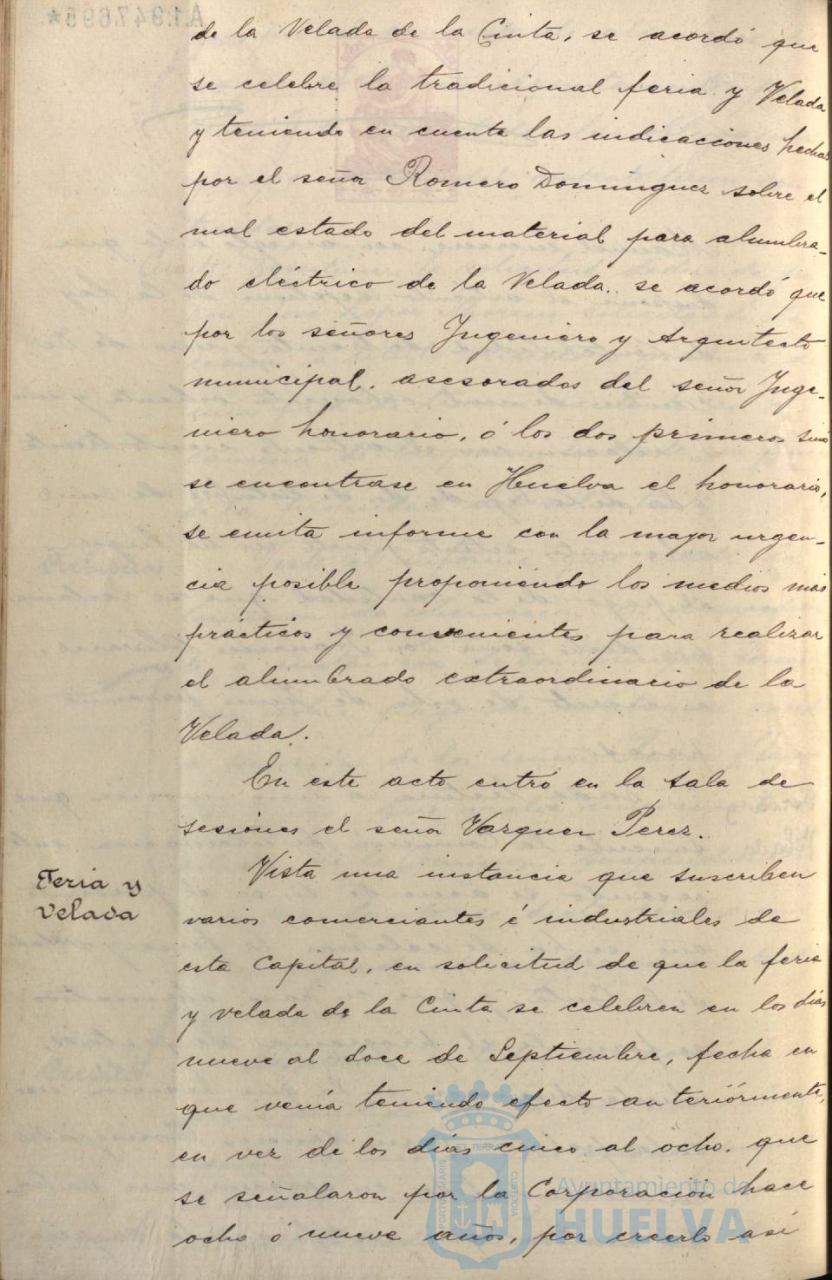 A1.947.695*
de la Velada de la Cinta, se acordó que
se celebre la tradicional feria y Velada
y teniendo en cuenta las indicaciones hechas
por el señor Romero Dominguez sobre el
mal estado del material para alumbra-
do eléctrico de la Velada. se acordó que
por los señores Ingeniero y Arquitecto
municipal. asesorados del señor Inge-
niero honorario, ó los dos primeros sino
se encontrase en Huelva el honorario,
se emita informe con la mayor urgen-
cia posible proponiendo los medios mas
prácticos y convenientes para realizar
el alumbrado extraordinario de la
Velada.
En este acto entró en la sala de
sesiones el señor Vazquez Perez.
Feria y
Velada
Vista una instancia que suscriben
varios comerciantes é industriales de
esta Capital, en solicitud de que la feria
y velada de la Cinta se celebren en los dias
nueve al doce de Septiembre, fecha en
que venía teniendo efecto anteriormente,
en vez de los días cinco al ocho. que
se señalaron por la Corporación hace
ocho ó nueve años, por creerlo así
Ayuntamiento de
HUELVA